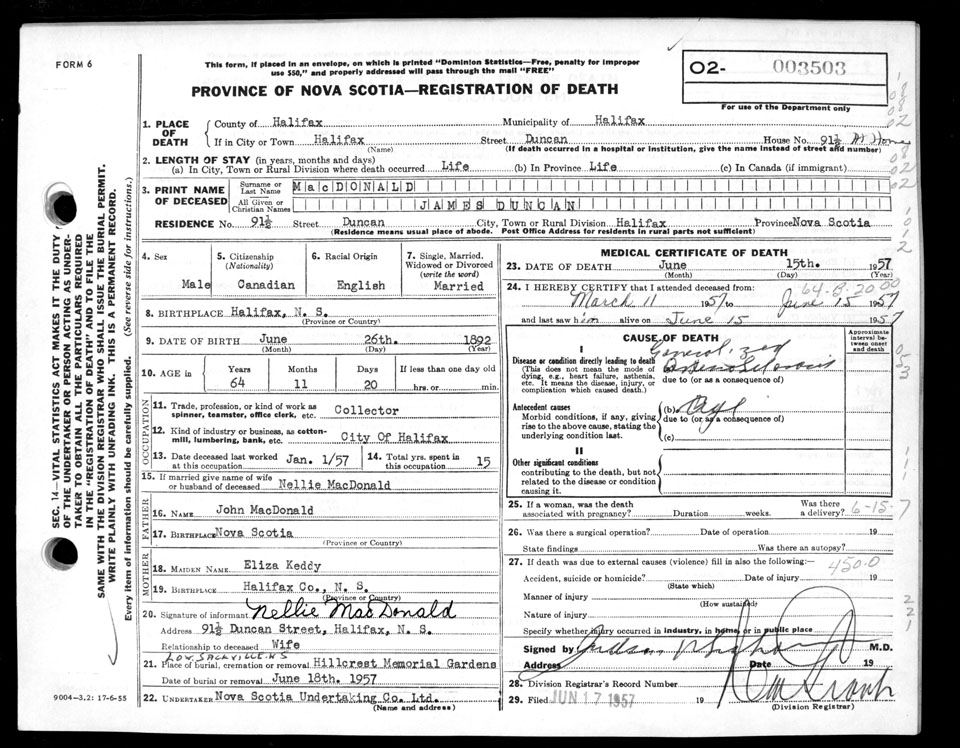 FORM 6
This form, if placed in an envelope, on which is printed "Dominion Statistics—Free, penalty for improper
use $50," and properly addressed will pass through the mail "FREE"
PROVINCE OF NOVA SCOTIA—REGISTRATION OF DEATH
O2- 003503
For use of the Department only
1. PLACE OF DEATH
County of Halifax Municipality of Halifax
If in City or Town Halifax Street Duncan House No. 91½ At Home
(Name) (If death occurred in a hospital or institution, give the name instead of street and number)
2. LENGTH OF STAY (in years, months and days)
(a) In City, Town or Rural Division where death occurred Life (b) In Province Life (c) In Canada (if immigrant)
3. PRINT NAME OF DECEASED
Surname or Last Name MacDONALD
All Given or Christian Names JAMES DUNCAN
RESIDENCE No. 91½ Street Duncan City, Town or Rural Division Halifax Province Nova Scotia
(Residence means usual place of abode. Post Office Address for residents in rural parts not sufficient)
4. Sex
Male
5. Citizenship
(Nationality)
Canadian
6. Racial Origin
English
7. Single, Married,
Widowed or Divorced
(write the word)
Married
8. BIRTHPLACE Halifax, N. S.
(Province or Country)
9. DATE OF BIRTH June 26th. 1892
(Month) (Day) (Year)
10. AGE in
Years Months Days If less than one day old
64 11 20 hrs. or min.
OCCUPATION
11. Trade, profession, or kind of work as
spinner, teamster, office clerk, etc. Collector
12. Kind of industry or business, as cotton-
mill, lumbering, bank, etc. City Of Halifax
13. Date deceased last worked
at this occupation Jan. 1/57
14. Total yrs. spent in
this occupation 15
15. If married give name of wife
or husband of deceased Nellie MacDonald
FATHER
16. NAME John MacDonald
17. BIRTHPLACE Nova Scotia
(Province or Country)
MOTHER
18. MAIDEN NAME Eliza Keddy
19. BIRTHPLACE Halifax Co., N. S.
(Province or Country)
20. Signature of informant Nellie MacDonald
Address 91½ Duncan Street, Halifax, N. S.
Relationship to deceased Wife
Low. Sackville N S
21. Place of burial, cremation or removal Hillcrest Memorial Gardens
Date of burial or removal June 18th. 1957
22. UNDERTAKER Nova Scotia Undertaking Co. Ltd.
(Name and address)
MEDICAL CERTIFICATE OF DEATH
23. DATE OF DEATH June 15th. 1957
(Month) (Day) (Year)
64-B-2000
24. I HEREBY CERTIFY that I attended deceased from:
March 11 1957 to June 15 1957
and last saw him alive on June 15 1957
CAUSE OF DEATH
Approximate interval between onset and death
I
Disease or condition directly leading to death
(This does not mean the mode of
dying, e.g., heart failure, asthenia,
etc. It means the disease, injury, or
complication which caused death.)
Generalized
Arteriosclerosis
due to (or as a consequence of)
Antecedent causes
Morbid conditions, if any, giving
rise to the above cause, stating the
underlying condition last.
(b) Age
due to (or as a consequence of)
(c)
II
Other significant conditions
contributing to the death, but not
related to the disease or condition
causing it.
25. If a woman, was the death
associated with pregnancy? Duration weeks. Was there
a delivery? 6-15-7
26. Was there a surgical operation? Date of operation 19
State findings Was there an autopsy?
27. If death was due to external causes (violence) fill in also the following:—
450.0
Accident, suicide or homicide? Date of injury 19
(State which)
Manner of injury
(How sustained)
Nature of injury
Specify whether injury occurred in industry, in home, or in public place
Signed by M.D.
Address Date 19
28. Division Registrar's Record Number
29. Filed JUN 17 1957 19
(Division Registrar)
SEC. 14—VITAL STATISTICS ACT MAKES IT THE DUTY
OF THE UNDERTAKER OR PERSON ACTING AS UNDER-
TAKER TO OBTAIN ALL THE PARTICULARS REQUIRED
IN THE "REGISTRATION OF DEATH" AND TO FILE THE
SAME WITH THE DIVISION REGISTRAR WHO SHALL ISSUE THE BURIAL PERMIT.
WRITE PLAINLY WITH UNFADING INK. THIS IS A PERMANENT RECORD.
Every item of information should be carefully supplied. (See reverse side for instructions.)
9004-3.2: 17-6-55